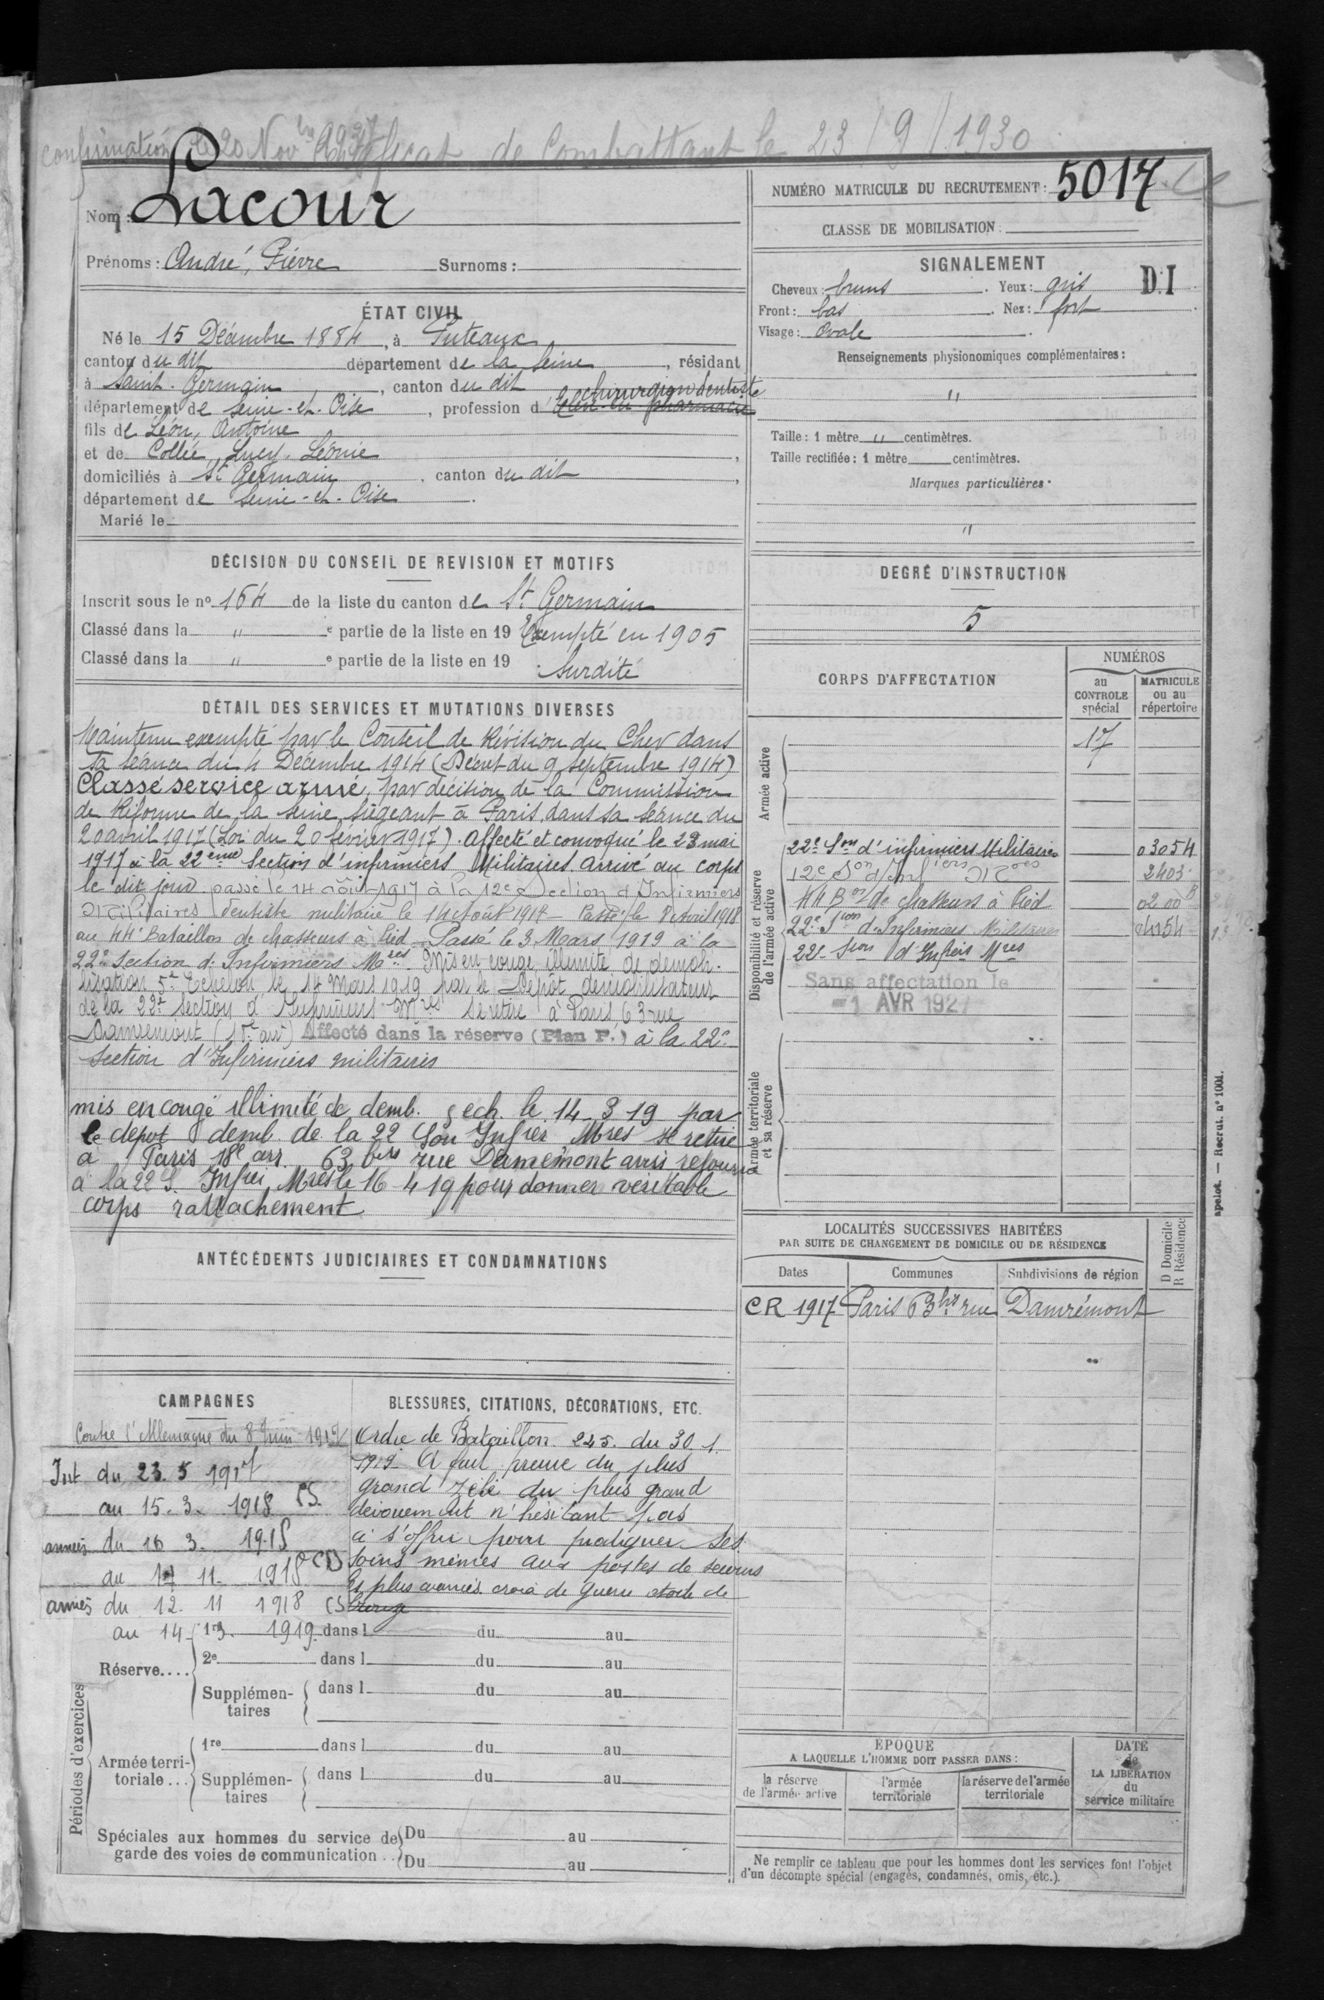 confirmation le 20 Nov bre 1927 Certificat de Combattant le 23/9/1930
Nom : Lacour
Prénoms : André, Pierre Surnoms :
ÉTAT CIVIL
Né le 15 Décembre 1884, à Puteaux
canton du dit département de la Seine, résidant
à Saint-Germain, canton du dit
chirurgien dentiste
département de Seine-et-Oise, profession d'élève en pharmacie
fils de Léon, Antoine
et de Collée, Lucy, Léonie,
domiciliés à St Germain, canton du dit,
département de Seine-et-Oise.
Marié le
DÉCISION DU CONSEIL DE REVISION ET MOTIFS
Inscrit sous le no 164 de la liste du canton de St Germain
Classé dans la " e partie de la liste en 19 Exempté en 1905
Classé dans la " e partie de la liste en 19 Surdité
DÉTAIL DES SERVICES ET MUTATIONS DIVERSES
Maintenu exempté par le Conseil de Révision du Cher dans
sa séance du 4 Décembre 1914 (Décret du 9 septembre 1914)
Classé service armé, par décision de la Commission
de Réforme de la Seine, siégeant à Paris, dans sa séance du
20 avril 1917 (Loi du 20 février 1917). Affecté et convoqué le 23 mai
1917 à la 22ème Section d'infirmiers Militaires. Arrivé au corps
le dit jour. passé le 14 août 1917 à la 12e Section d'Infirmiers
Militaires dentiste militaire le 14 Août 1917 - Passé le 8 Avril 1918
au 44e Bataillon de chasseurs à Pied - Passé le 3 Mars 1919 à la
22e Section d'Infirmiers Mres Mis en congé illimité de démobi-
lisation 5e Echelon le 14 Mars 1919 par le Dépôt démobilisateur
de la 22e Section d'Infirmiers Mres se retire à Paris 63 rue
Damrémont (18e arr) Affecté dans la réserve (Plan P.) à la 22e
Section d'Infirmiers militaires
mis en congé illimité de demb. 5 ech. le 14 3 19 par
le depot demb. de la 22 Son Infier Mres se retire
à Paris 18e arr. 63 bis rue Damémont avis retourné
à la 22 S. Infiei Mres le 16 4 19 pour donner véritable
corps rattachement
ANTÉCÉDENTS JUDICIAIRES ET CONDAMNATIONS
CAMPAGNES
Contre l'Allemagne du 8 Juin 1917
Int du 23.5 1917
au 15.3. 1918 CS
armées du 16 3. 1918
au 11 11. 1918 CD
armées du 12. 11 1918 CS
au 14 3. 1919
BLESSURES, CITATIONS, DÉCORATIONS, ETC.
Ordre de Bataillon 245. du 30.1.
1919. A fait preuve du plus
grand zèle du plus grand
dévouement n'hésitant pas
à s'offrir pour prodiguer ses
soins mêmes aux postes de secours
les plus avancés croix de guerre étoile de
bronze
Périodes d'exercices
Réserve.... 1re dans l du au
2e dans l du au
Supplémen-taires dans l du au
Armée terri-toriale... 1re dans l du au
Supplémen-taires dans l du au
Spéciales aux hommes du service de garde des voies de communication.. Du au
Du au
NUMÉRO MATRICULE DU RECRUTEMENT : 5017
CLASSE DE MOBILISATION :
SIGNALEMENT
D.I
Cheveux : bruns. Yeux : gris
Front : bas. Nez : fort
Visage : Ovale.
Renseignements physionomiques complémentaires :
"
Taille : 1 mètre " centimètres.
Taille rectifiée : 1 mètre centimètres.
Marques particulières.
"
DEGRÉ D'INSTRUCTION
5
CORPS D'AFFECTATION
NUMÉROS
au CONTROLE spécial
MATRICULE ou au répertoire
Armée active
17
Disponibilité et réserve de l'armée active
22e Son d'infirmiers Militaires 03054
12e Son d'Infiers Mres 2403
44 Bon de chasseurs à Pied 0200
22e Sion d'Infirmiers Militaires 04154
22e Sion d'Infiers Mres
Sans affectation le
1 AVR 1927
Armée territoriale et sa réserve
LOCALITÉS SUCCESSIVES HABITÉES
PAR SUITE DE CHANGEMENT DE DOMICILE OU DE RÉSIDENCE
Dates Communes Subdivisions de région D Domicile R Résidence
CR 1917 Paris 63 bis rue Damrémont
EPOQUE
A LAQUELLE L'HOMME DOIT PASSER DANS :
la réserve de l'armée active
l'armée territoriale
la réserve de l'armée territoriale
DATE de LA LIBÉRATION du service militaire
Ne remplir ce tableau que pour les hommes dont les services font l'objet
d'un décompte spécial (engagés, condamnés, omis, etc.).
apelot. — Recrut. n° 1001.